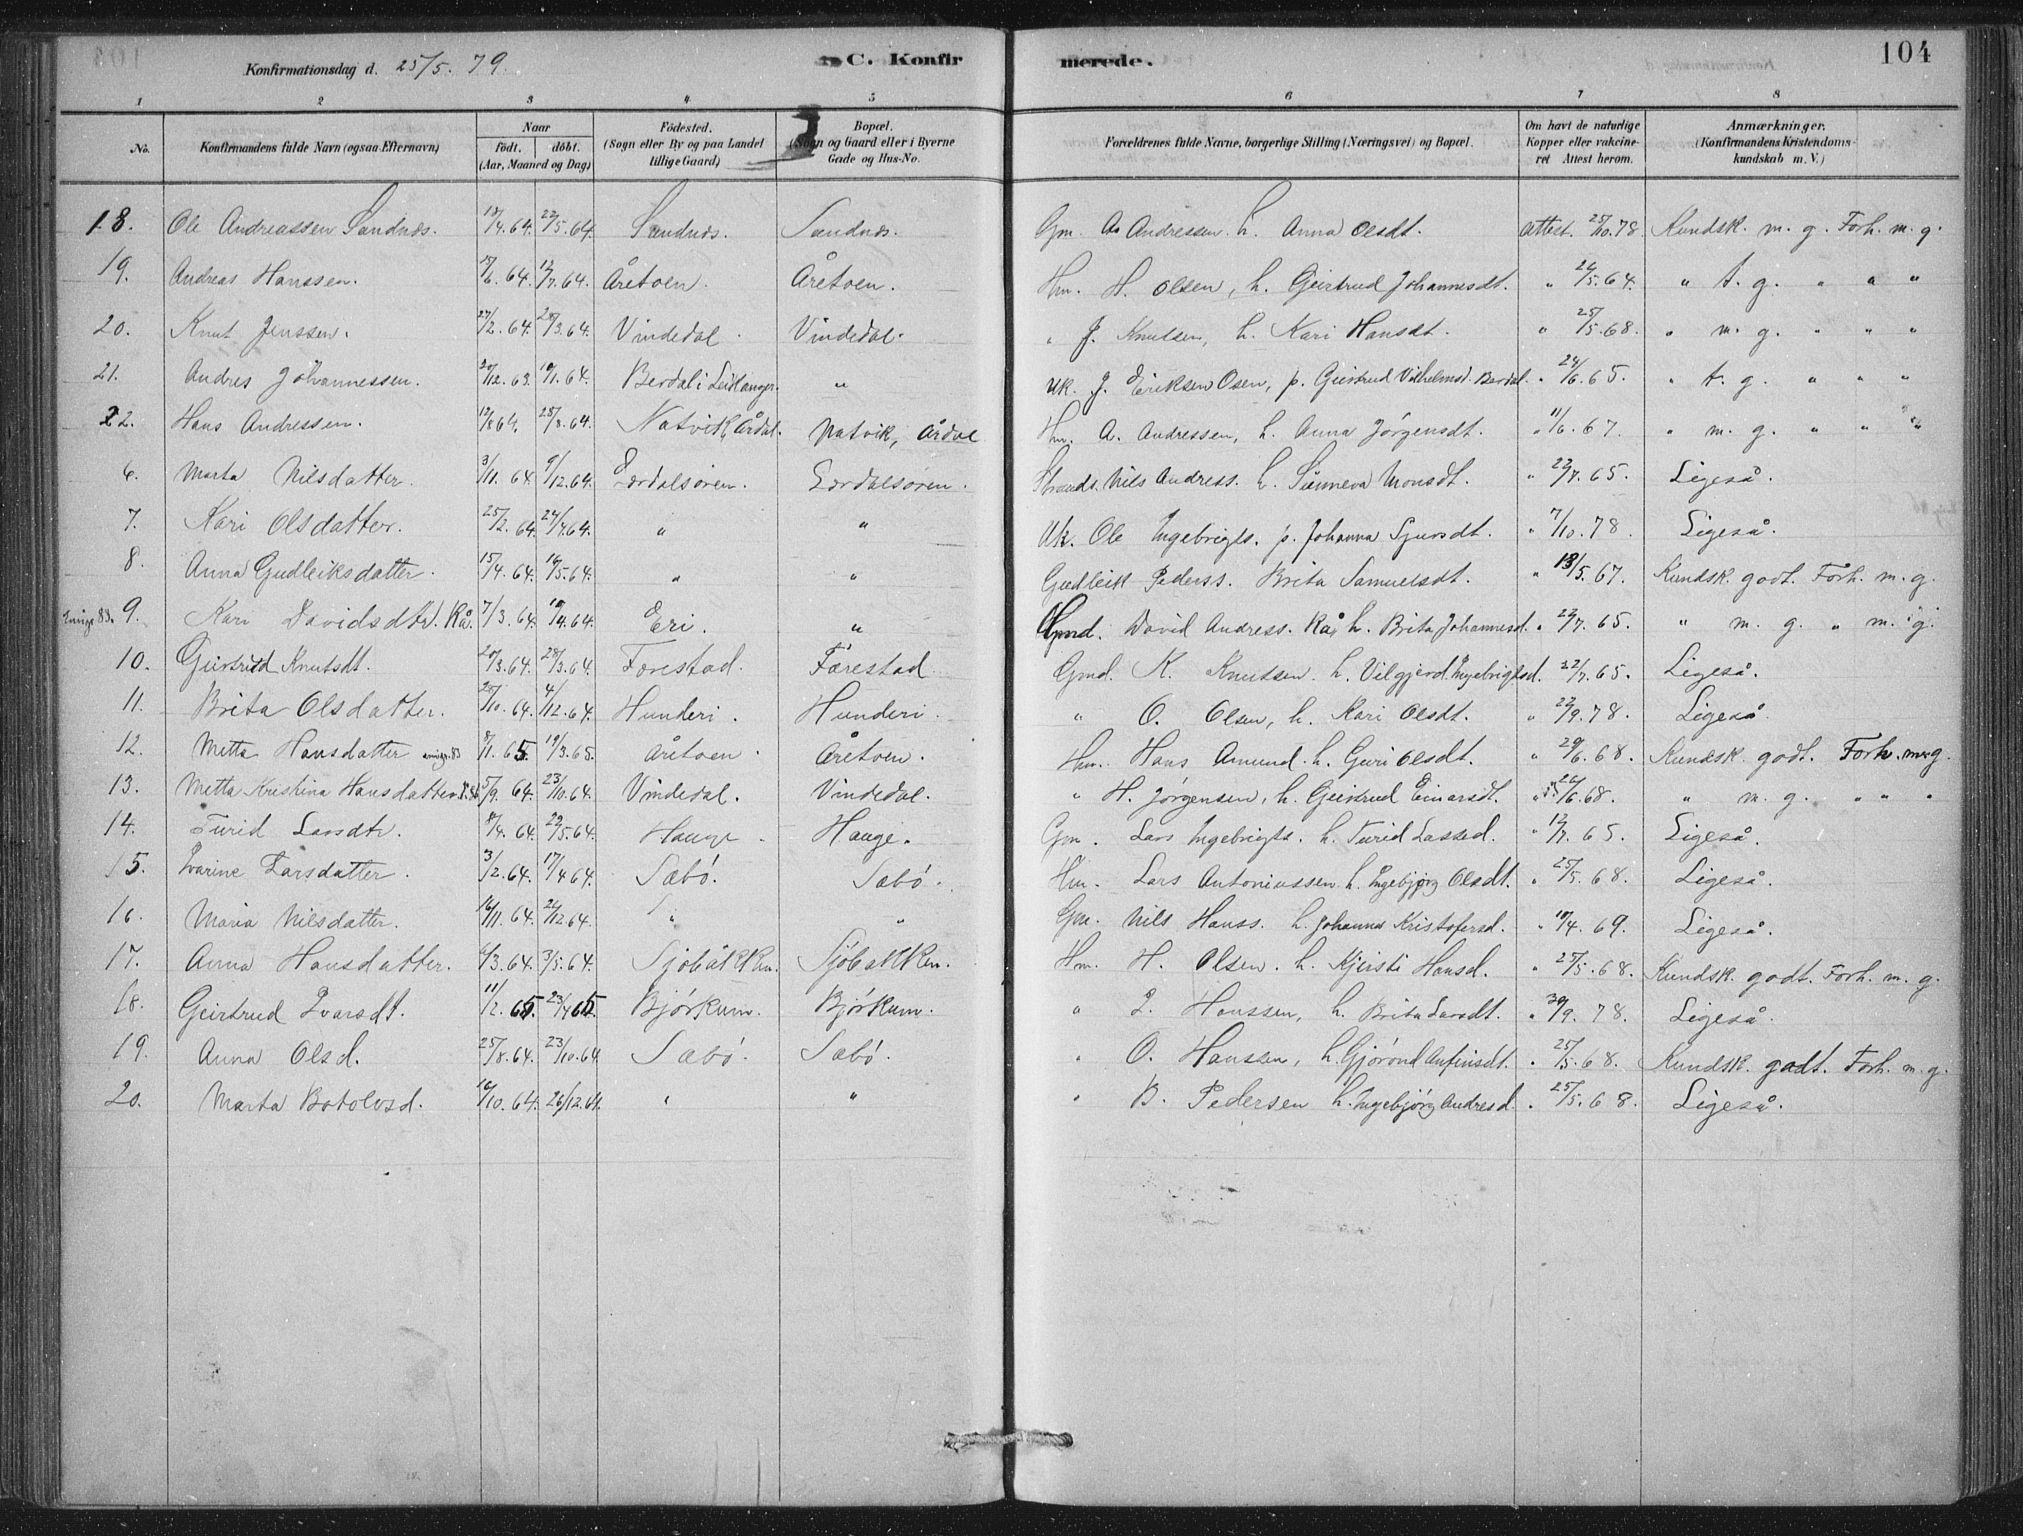 Konfirmationsdag d. 25/5. 79. C. Konfirmerede. 104
1 2 3 4 5 6 7 8
No. Konfirmandens fulde Navn (ogsaa Efternavn) Naar födt. döbt. (Aar, Maaned og Dag) Födested. (Sogn eller By og paa Landet tillige Gaard) Bopæl. (Sogn og Gaard eller i Byerne Gade og Hus-No. Forældrenes fulde Navne, borgerlige Stilling (Næringsvei) og Bopæl. Om havt de naturlige Kopper eller vakcineret Attest herom. Anmærkninger. (Konfirmandens Kristendomskundskab m. V.)
18. Ole Andreassen Sandnæs. /4.64. 22/5.64. Sandnæs. Sandnæs. Gm. A. Andressen. h. Anna Olsdt. Attest. 25/10.78. Kundsk. m. g. Forh. m. g.
19. Andreas Hanssen. /6.64. 12/7.64. Åretoen. Åretoen. Hm. H. Olsen, h. Geirtrud Johannesdt. " 26/5.64. " t. g. " " "
20. Knut Jenssen. 27/2.64. 28/3.64. Vindedal. Vindedal. " J. Knutsen, h. Kari Hansdt. " 25/5.68. " m. g. " " "
21. Andres Johannessen. 20/12.63. 10/1.64. Berdal i Leikanger. " Uk. J. Eriksen Osen, p. Geirtrud Vilhelmsd. Berdal. " 24/6.65. " t. g. " " "
22. Hans Andressen. 12/8 64. 28/8.64. Natvik, Årdal. Natvik, Årdal Hm. A. Andressen, h. Anna Jörgensdt. " 11/6.67. " m. g. " " "
6. Marta Nilsdatter. 3/11.64. 9/12.64. Erdalsören. Erdalsören. Strands. Nils Andress. h. Sünneva Monsdt. " 22/7.65. Ligeså.
7. Kari Olsdatter. 25/2.64. 24/4.64. " " Uk. Ole Ingebrigts. p. Johanna Sjursdt. " 7/10.78. Ligeså.
8. Anna Gudleiksdatter. 15/4.64. 16/5.64. " " Gudleik Pederss. Brita Samuelsdt. " 13/5.67. Kundsk. godt. Forh. m. g.
83. 9. Kari Davidsdtr. Rå. 7/3.64. 10/4.64. Eri. " Gmd. David Andress. Rå, h. Brita Johannesd. " 22/7.65. " m. g. " m. g.
10. Geirtrud Knutsdt. 20/3.64. 28/3.64. Forestad. Færestad. Gmd. K. Knutsen. h. Vilgjerd Ingebrigtsd. 22/7.65. Ligeså.
11. Brita Olsdatter. 25/10.64. 4/12.64. Hunderi. Hunderi. " O. Olsen, h. Kari Olsdt. " 22/9.78. Ligeså.
12. Metta Hansdatter emigr. 83 8/11.65. 19/3.65. Åretoen. Åretoen. Hm. Hans Amund. h. Guri Olsdt. " 20/6.68. Kundsk. godt. Forh. m. g.
13. Metta Kristina Hansdatter 5/9.64. 23/10.64. Vindedal. Vindedal. " H. Jörgensen, h. Geirtrud Einarsdt. " 26/6.68. " m. g. " " "
14. Turid Larsdtr. 8/4.64. 22/5.64. Hauge. Hauge. Gm. Lars Ingebrigts. h. Turid Lassed. " 12/7.65. Ligeså.
15. Ivarine Larsdatter. 3/2.64. 17/4.64. Sæbö. Sæbö. Hm. Lars Antoniussen h. Ingebjörg Olsdt. " 25/5.68. Ligeså.
16. Maria Nilsdatter. 16/11.64. 26/12 64. " " Gm. Nils Hanss. h. Johanna Kristofersd. " 10/4.69. Ligeså.
17. Anna Hansdatter. 6/3.64. 3/5.64. Sjöbakken. Sjöbakken. Hm. H. Olsen. h. Kjersti Hansd. " 25/5.68. Kundsk. godt. Forh. m. g.
18. Geirtrud Ivarsdt. 11/2.65. 23/4 65. Bjørkum. Bjørkum. " I. Hanssen, h. Brita Larsdt. " 30/9.78. Ligeså.
19. Anna Olsd. 25/8.64. 23/10.64 Sæbö. Sæbö. " O. Hanssen, h. Gjörond Anfinsdt. " 25/5.68. Kundsk. godt. Forh. m. g.
20. Marta Botolvsd. 16/10.64. 26/12.64. " " " B. Pedersen h. Ingebjörg Andresd. " 25/5.68. Ligeså.